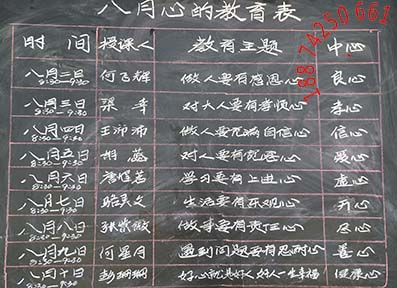 八月心的教育表
时间 授课人 教育主题 中心
18874250661
八月二日 8:30—9:30 何飞辉 做人要有感恩心 良心
八月三日 8:30—9:30 张 对大人要有孝顺心 孝心
八月四日 8:30—9:30 王沛沛 做人要充满自信心 信心
八月五日 8:30—9:30 胡蕊 对人要有宽恕心 爱心
八月六日 8:30—9:30 学习要有上进心 虚心
八月七日 8:30—9:30 生活要有乐观心 开心
八月八日 8:30—9:30 张紫薇 做事要有责任心 尽心
八月九日 8:30—9:30 何星月 遇到问题要有忍耐心 善心
八月十日 8:30—9:30 彭珊珊 好心就是好人好人一生幸福 健康心